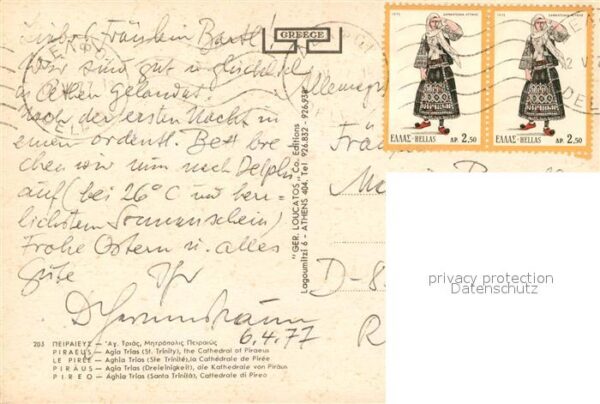 Liebes Fräulein Bartl!
Wir sind gut u. glücklich
in Athen gelandet.
Nach der ersten Nacht in
einem ordentl. Bett bre-
chen wir nun nach Delphi
auf (bei 26°C und herr-
lichstem Sonnenschein)
Frohe Ostern u. alles
Gute Ihr
6.4.77
GREECE
"GER. LOUCATOS" Co. Editions
Lagoumitzi 6 - ATHENS 404, Tel 926.832 - 926.939
ΕΛΛΑΣ-HELLAS ΔΡ. 2,50
ΕΛΛΑΣ-HELLAS ΔΡ. 2,50
Allemagne
Fräu
D-8
privacy protection
Datenschutz
203 ΠΕΙΡΑΙΕΥΣ — Ἁγ. Τριάς, Μητρόπολις Πειραιῶς
PIRAEUS — Agia Trias (St. Trinity), the Cathedral of Piraeus
LE PIRÉE — Aghia Trias (Ste Trinité), la Cathédrale de Pirée
PIRÄUS — Agia Trias (Dreieinigkeit), die Kathedrale von Piräus
PIREO — Aghia Trias (Santa Trinità), Cattedrale di Pireo